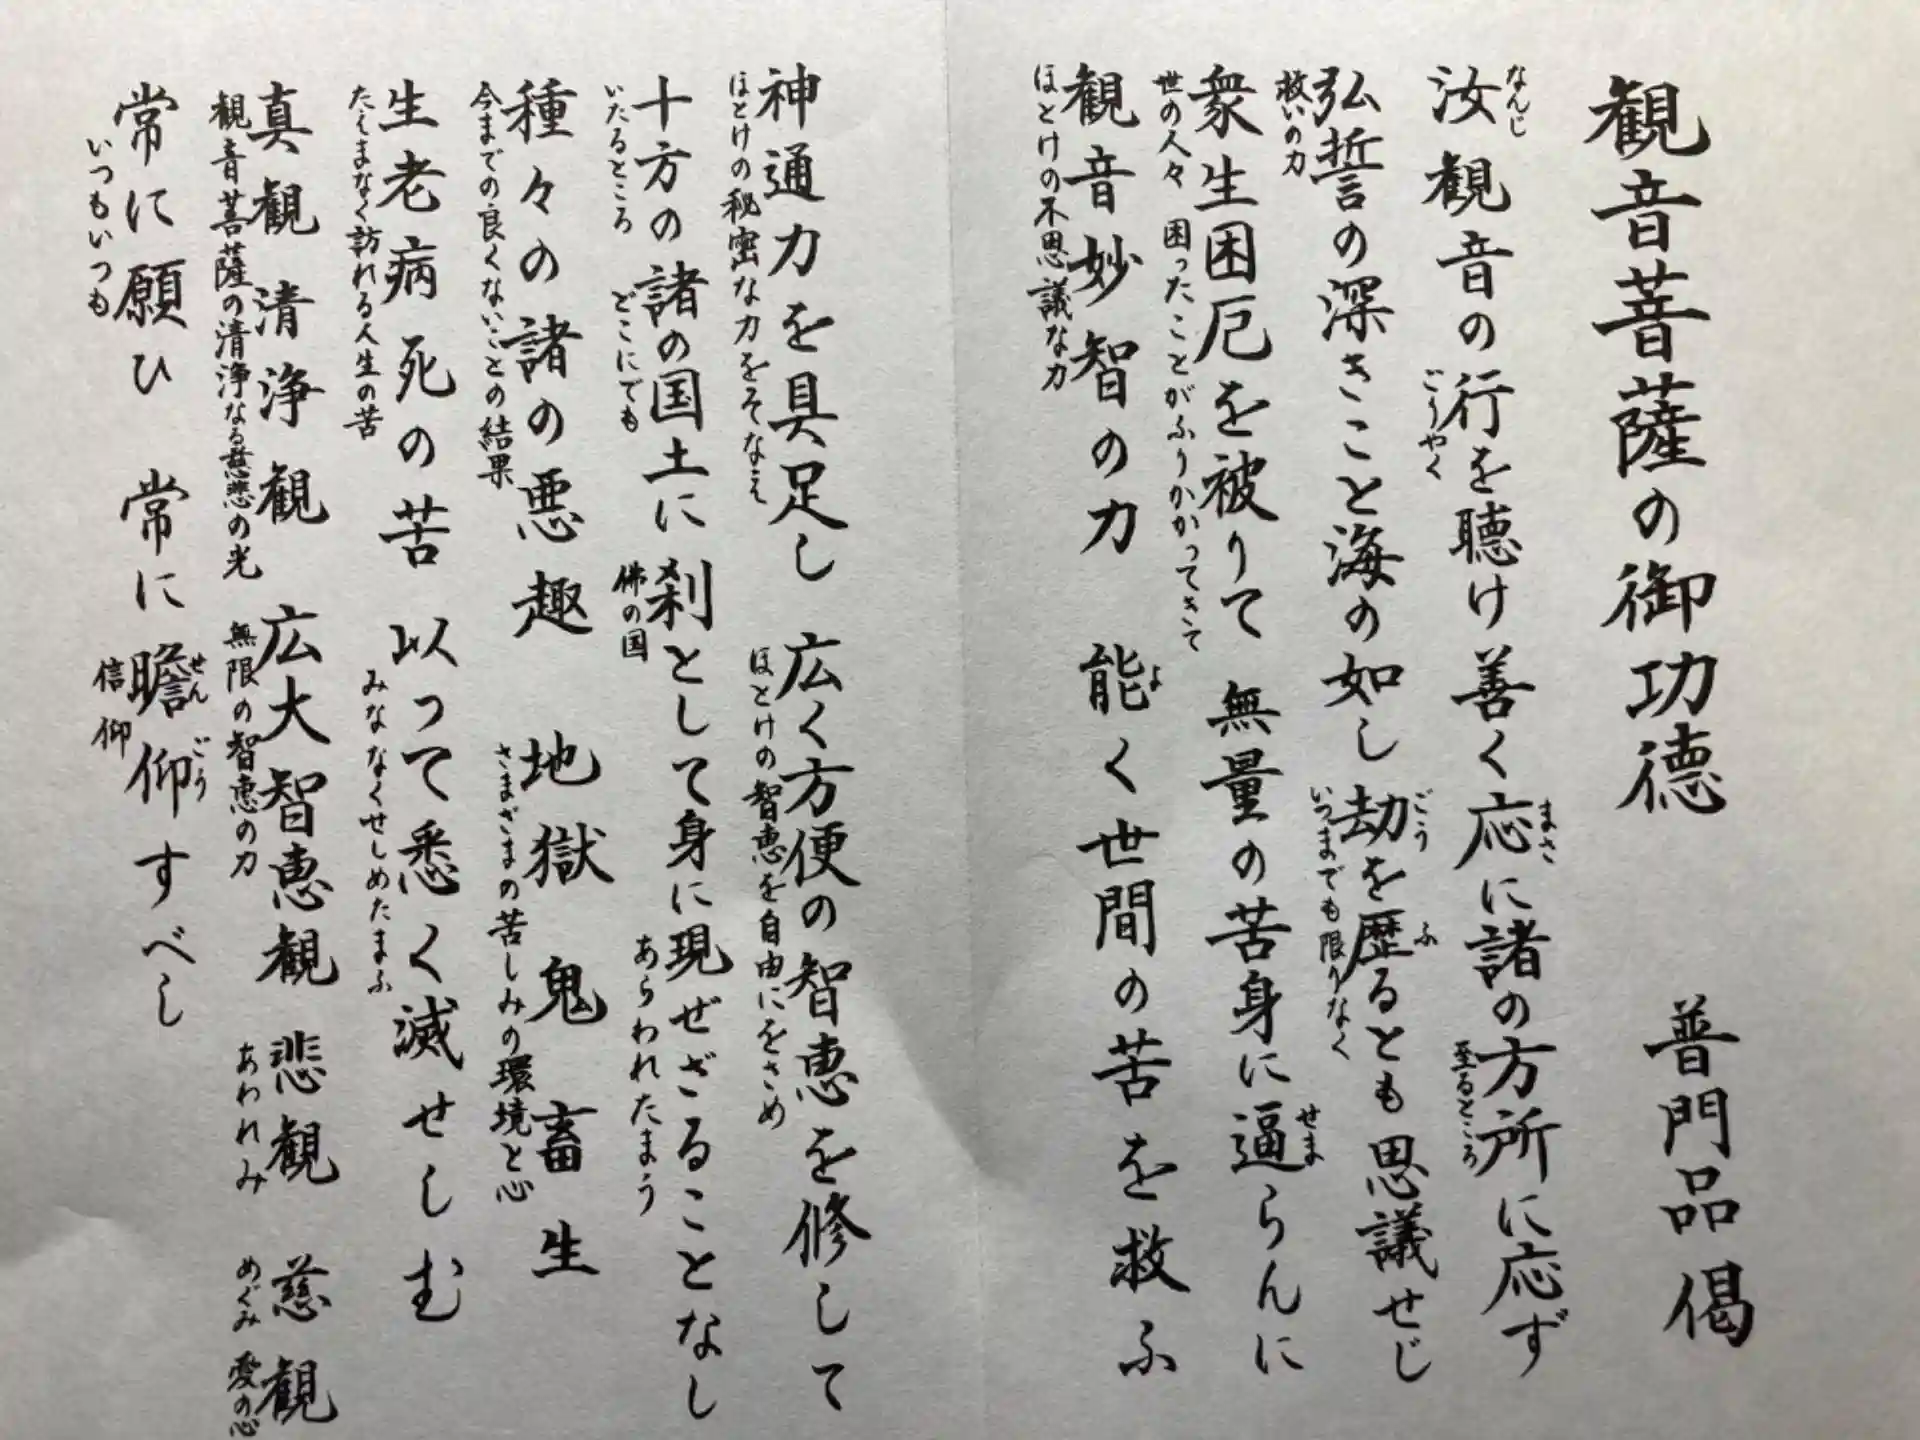 観音菩薩の御功徳 普門品偈
なんじ
汝観音の行を聴け善く応に諸の方所に応ず
ごうやく
まさ
至るところ
弘誓の深きこと海の如し劫を歴るとも思議せじ
救いの力
ごう
ふ
いつまでも限りなく
衆生困厄を被りて 無量の苦身に逼らんに
世の人々 困ったことがふりかかってきて
せま
観音妙智の力 能く世間の苦を救ふ
ほとけの不思議な力
よ
神通力を具足し 広く方便の智恵を修して
ほとけの秘密な力をそなえ
ほとけの智恵を自由にをさめ
十方の諸の国土に刹として身に現ぜざることなし
いたるところ どこにでも
佛の国
あらわれたまう
種々の諸の悪趣 地獄 鬼 畜生
今までの良くないことの結果
さまざまの苦しみの環境と心
生老病死の苦 以って悉く滅せしむ
たえまなく訪れる人生の苦
みななくせしめたまふ
真観清浄観 広大智恵観 悲観 慈観
観音菩薩の清浄なる慈悲の光
無限の智恵の力
あわれみ
めぐみ 愛の心
常に願ひ 常に瞻仰すべし
いつもいつも
せん ごう
信仰